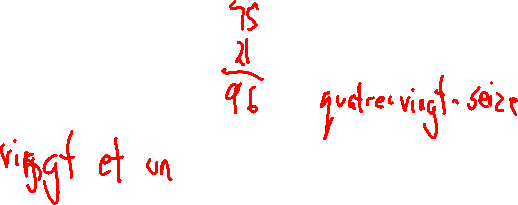 75
21
96
quatre-vingt-seize
vingt et un